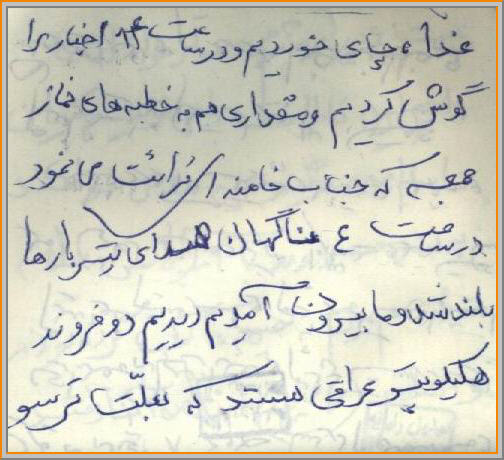 غذا، چای خوردیم و در ساعت ۲ اخبار را
گوش کردیم و مقداری هم به خطبه های نماز
جمعه که جناب خامنه ای قرائت می نمود
در ساعت ۴ ناگهان صدای تیربارها
بلند شد و ما بیرون آمدیم دیدیم دو فروند
هلیکوپتر عراقی هستند که بعلت ترس و